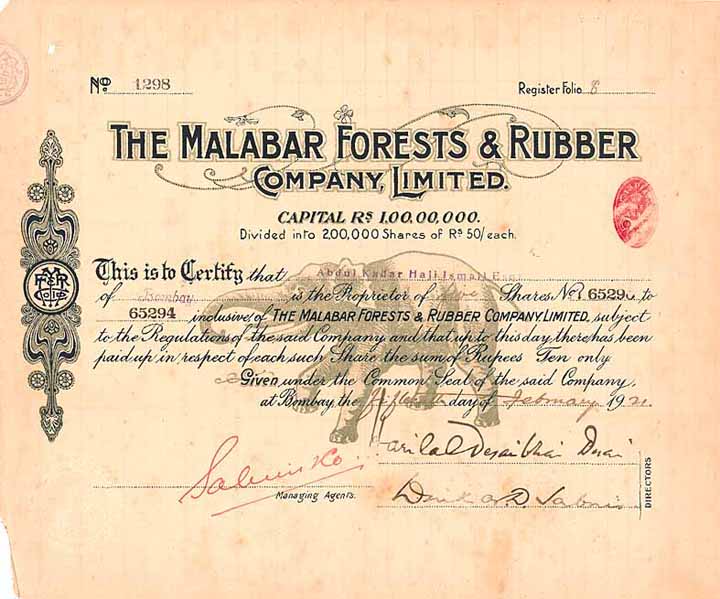 No. 1298
Register Folio 8
THE MALABAR FORESTS & RUBBER
COMPANY, LIMITED.
CAPITAL RS 1,00,00,000.
Divided into 2,00,000 Shares of RS 50/each.
This is to Certify that Abdul Kadar Haji Ismail Esq
of Bombay is the Proprietor of five Shares No. 65290 to
65294 inclusive, of THE MALABAR FORESTS & RUBBER COMPANY, LIMITED, subject
to the Regulations of the said Company and that up to this day there has been
paid up in respect of each such Share the sum of Rupees Ten only
Given under the Common Seal of the said Company,
at Bombay, the fifteenth day of February 1921.
Harilal Desaibhai Desai
Managing Agents.
DIRECTORS